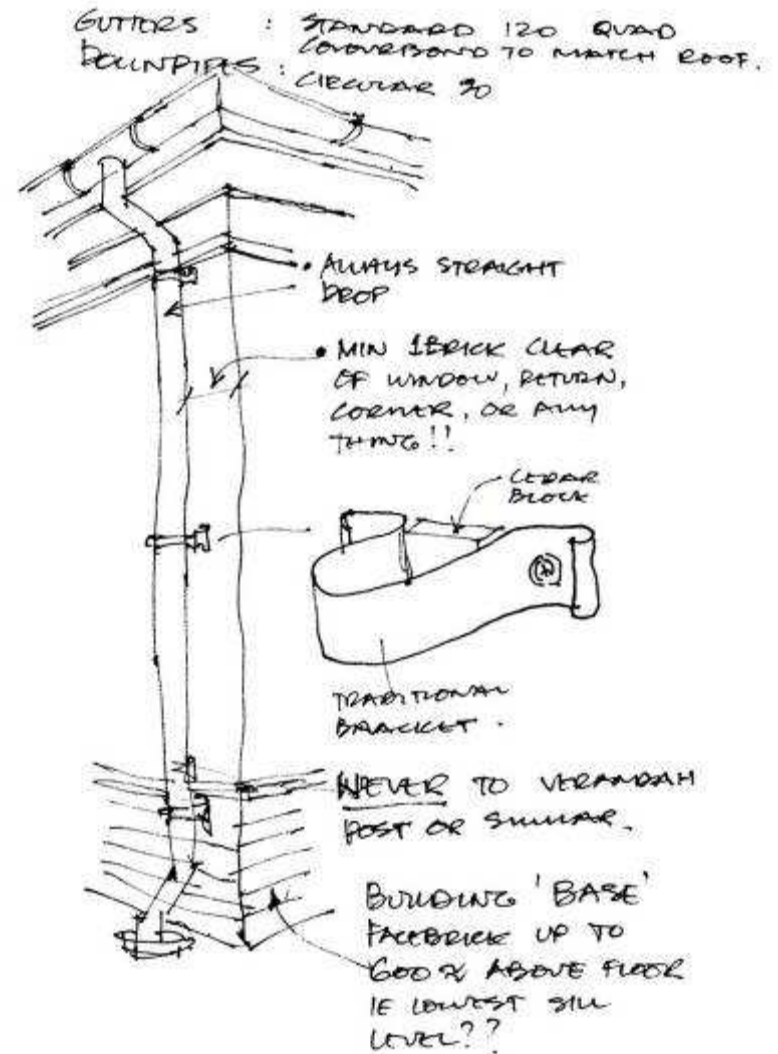 GUTTERS : STANDARD 120 QUAD
COLOURBOND TO MATCH ROOF.
DOWNPIPES : CIRCULAR 90
• ALWAYS STRAIGHT
DROP
• MIN 1 BRICK CLEAR
OF WINDOW, RETURN,
CORNER, OR ANY
THING!!
CEDAR
BLOCK
TRADITIONAL
BRACKET.
NEVER TO VERANDAH
POST OR SIMILAR.
BUILDING 'BASE'
FACEBRICK UP TO
600 ABOVE FLOOR
IE LOWEST SILL
LEVEL??